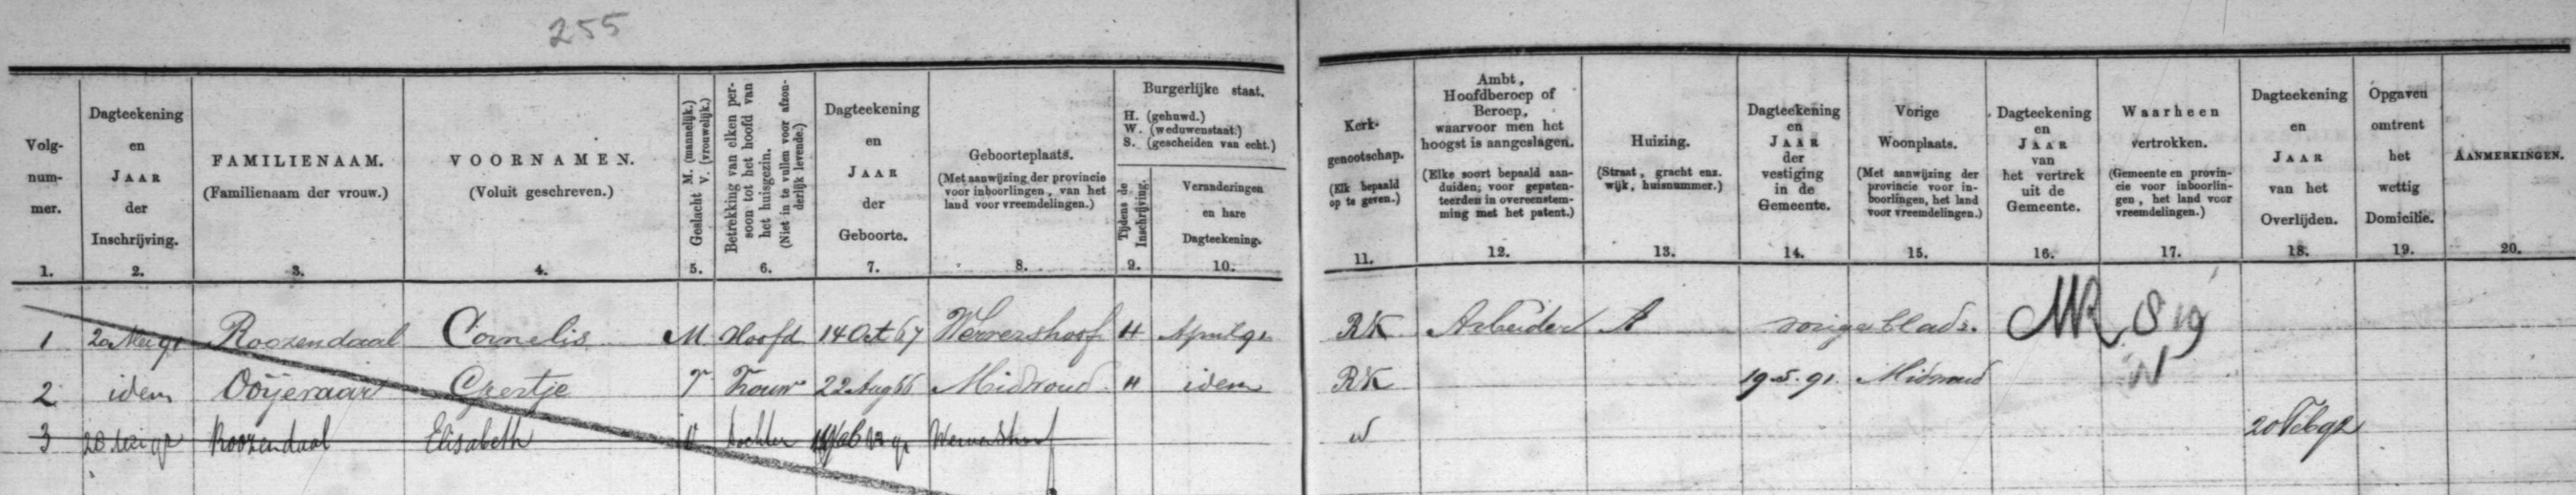 255
Volg-
num-
mer.
1.
Dagteekening
en
JAAR
der
Inschrijving.
2.
FAMILIENAAM.
(Familienaam der vrouw.)
3.
VOORNAMEN.
(Voluit geschreven.)
4.
Geslacht M. (mannelijk.)
V. (vrouwelijk.)
5.
Betrekking van elken per-
soon tot het hoofd van
het huisgezin.
(Niet in te vullen voor afzon-
derlijk levende.)
6.
Dagteekening
en
JAAR
der
Geboorte.
7.
Geboorteplaats.
(Met aanwijzing der provincie
voor inboorlingen, van het
land voor vreemdelingen.)
8.
Burgerlijke staat.
H. (gehuwd.)
W. (weduwenstaat.)
S. (gescheiden van echt.)
Tijdens de
Inschrijving.
9.
Veranderingen
en hare
Dagteekening.
10.
Kerk-
genootschap.
(Elk bepaald
op te geven.)
11.
Ambt,
Hoofdberoep of
Beroep,
waarvoor men het
hoogst is aangeslagen.
(Elke soort bepaald aan-
duiden; voor gepaten-
teerden in overeenstem-
ming met het patent.)
12.
Huizing.
(Straat, gracht enz.
wijk, huisnummer.)
13.
Dagteekening
en
JAAR
der
vestiging
in de
Gemeente.
14.
Vorige
Woonplaats.
(Met aanwijzing der
provincie voor in-
boorlingen, het land
voor vreemdelingen.)
15.
Dagteekening
en
JAAR
van
het vertrek
uit de
Gemeente.
16.
Waarheen
vertrokken.
(Gemeente en provin-
cie voor inboorlin-
gen, het land voor
vreemdelingen.)
17.
Dagteekening
en
JAAR
van het
Overlijden.
18.
Opgaven
omtrent
het
wettig
Domicilie.
19.
AANMERKINGEN.
20.
1 20 Mei 91 Roozendaal Cornelis M Hoofd 14 Oct 67 Wervershoof H April 91 RK Arbeider A vorige bladz.
2 idem Ooijevaar Geertje V Vrouw 22 Aug 66 Midwoud H idem RK 19.5.91. Midwoud
3 Roozendaal Elisabeth V dochter Wervershoof 20 Feb 92